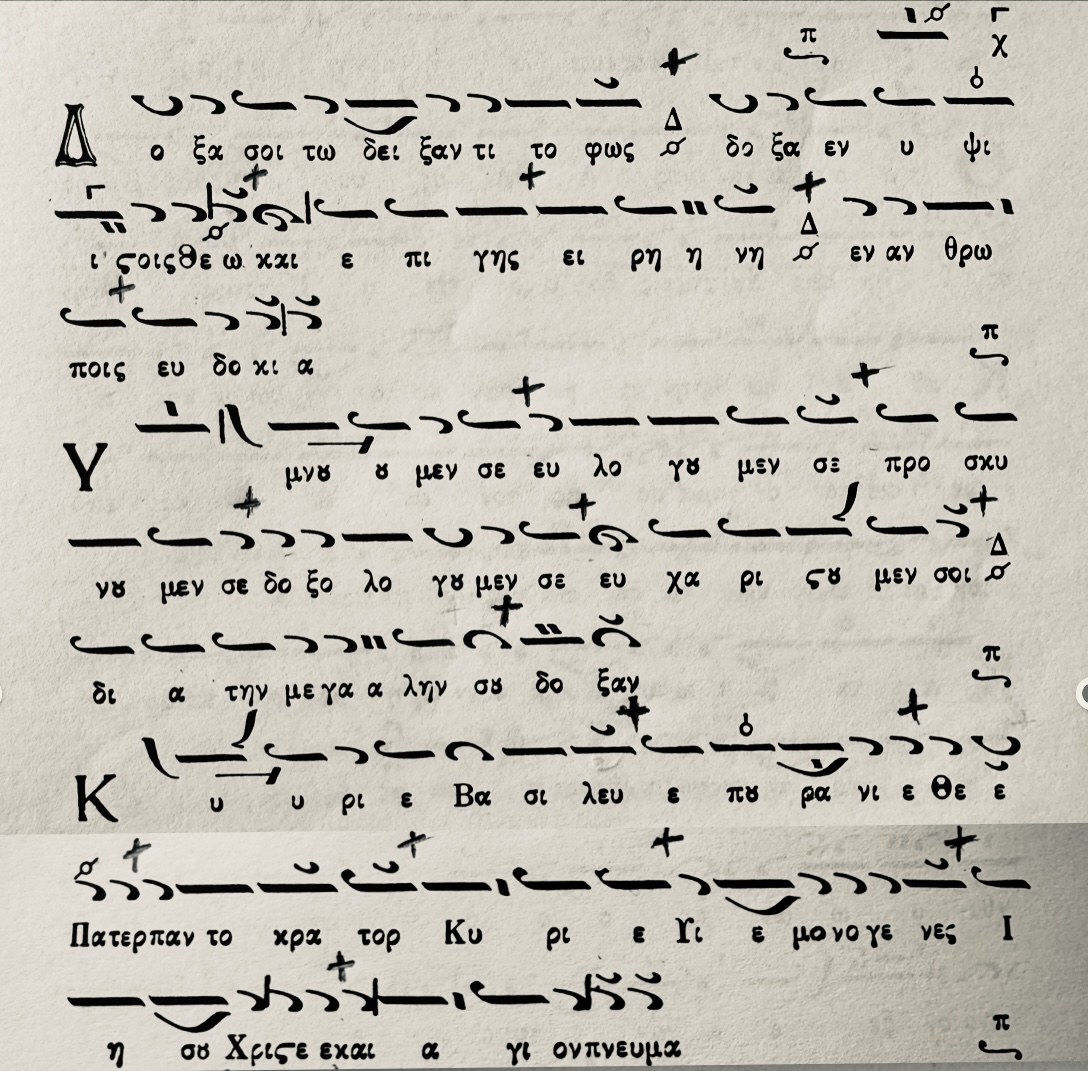 Δο ξα σοι τω δει ξαν τι το φως Δ δο ξα εν υ ψι
ι ϛοις Θε ω και ε πι γης ει ρη η νη Δ εν αν θρω
ποις ευ δο κι α π
Υ μνȣ ȣ μεν σε ευ λο γȣ μεν σε προ σκυ
νȣ μεν σε δο ξο λο γȣ μεν σε ευ χα ρι ϛȣ μεν σοι Δ
δι α την με γα α λην σȣ δο ξαν π
Κ υ υ ρι ε Βα σι λευ ε πȣ ρα νι ε Θε ε
Πατερ παν το κρα τορ Κυ ρι ε Υι ε μο νο γε νες Ι
η σȣ Χριϛε ε και α γι ον πνευμα π